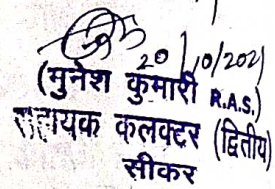 20/10/2021
(मुनेश कुमारी R.A.S.)
सहायक कलक्टर (द्वितीय)
सीकर